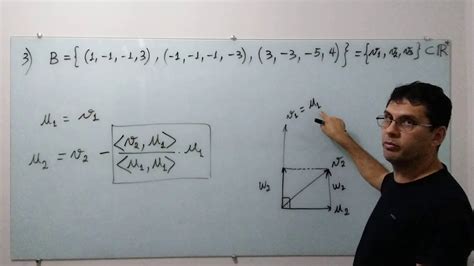 3) B = { (1, -1, -1, 3), (-1, -1, -1, -3), (3, -3, -5, 4) } = {v₁, v₂, v₃} ⊂ ℝ
μ₁ = v₁
μ₂ = v₂ - <v₂, μ₁> / <μ₁, μ₁> · μ₁
v₁ = μ₁
v₂
w₂
w₂
μ₂